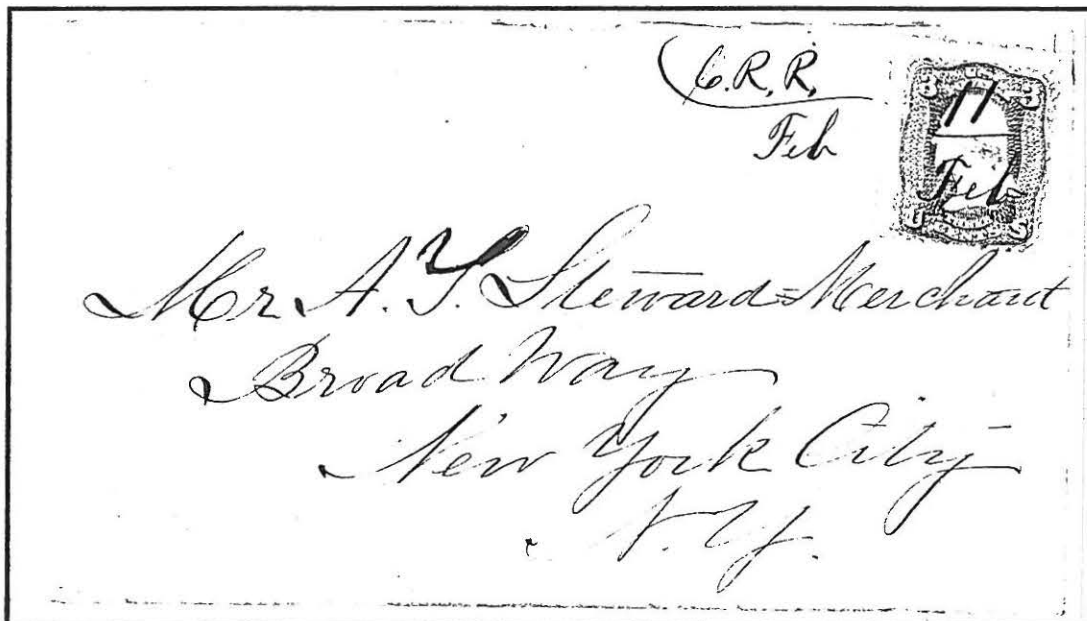 C.R.R.
Feb
11
Feb
Mr A. T. Steward=Merchant
Broad Way
New York City
N.Y.